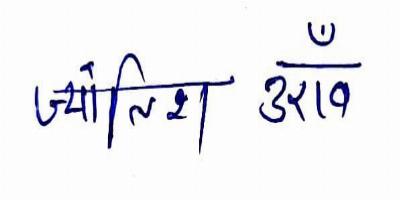 ज्योतिश उराँव